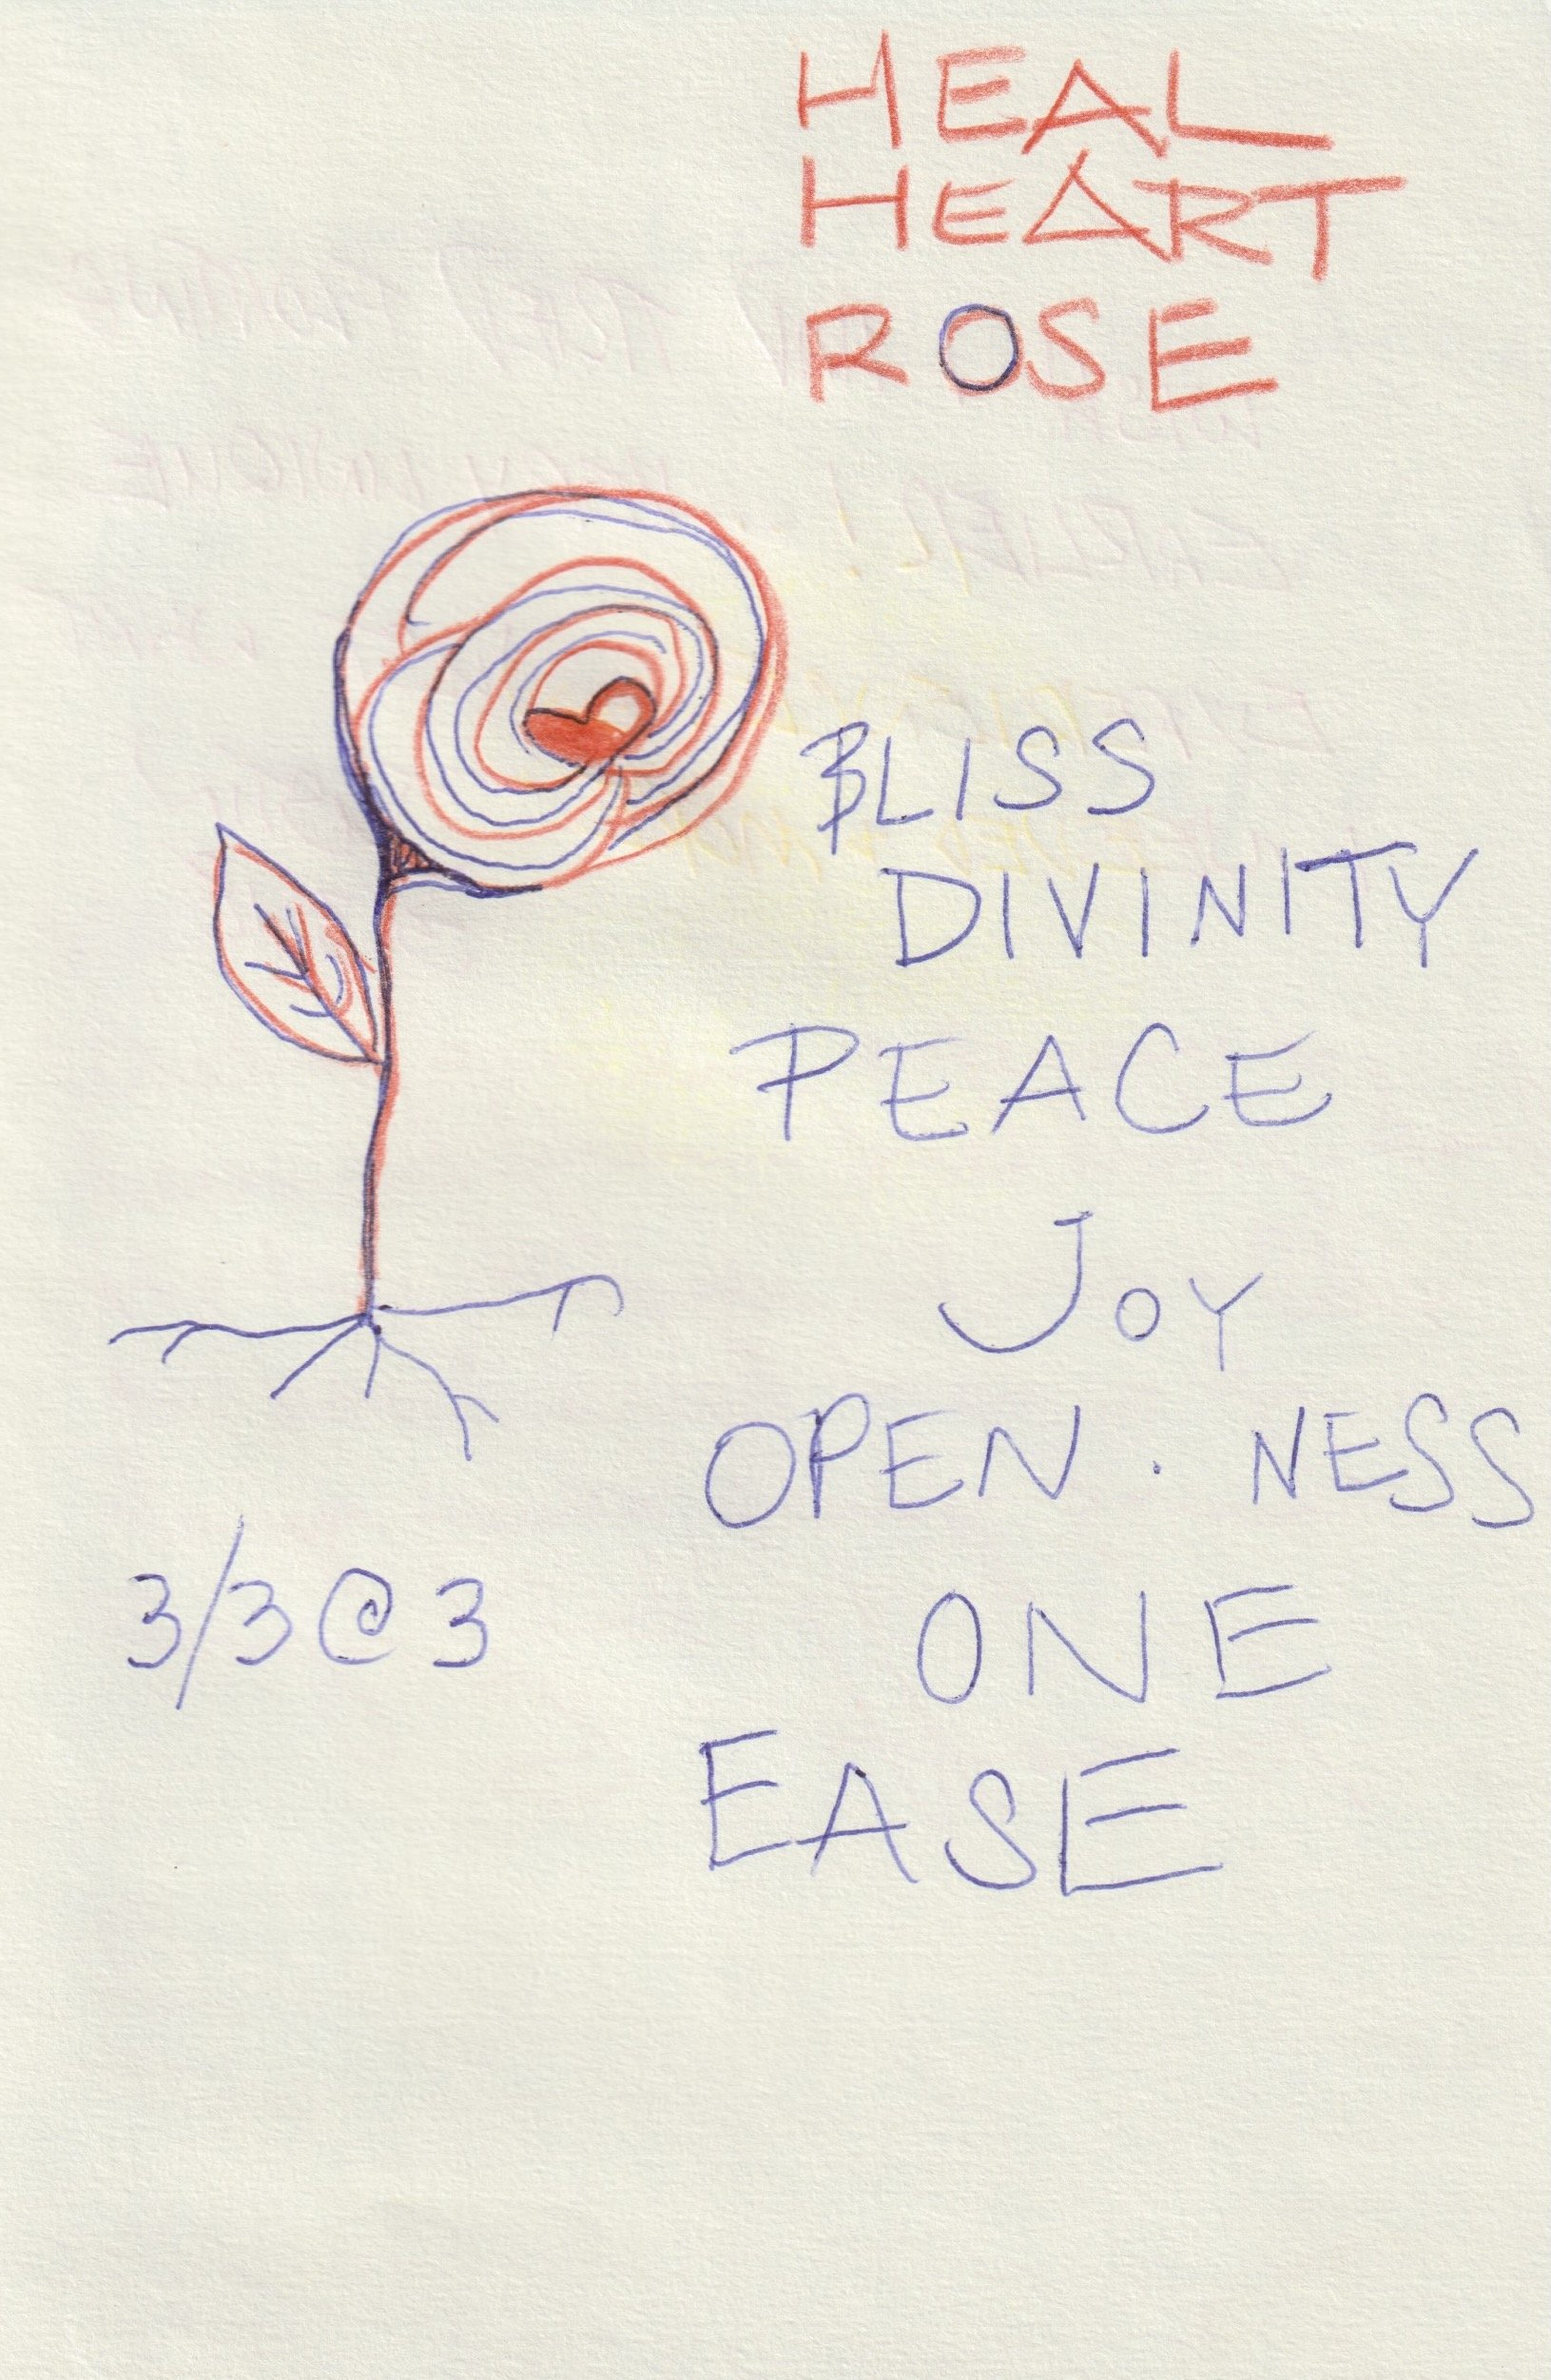 HEAL
HEART
ROSE
BLISS
DIVINITY
PEACE
JOY
OPEN . NESS
3/3@3
ONE
EASE